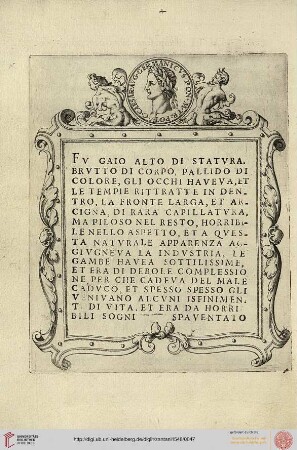 GERMANICVS PON M
FV GAIO ALTO DI STATVRA,
BRVTTO DI CORPO, PALLIDO DI
COLORE, GLI OCCHI HAVEVA, ET
LE TEMPIE RITTRATTE IN DEN
TRO, LA FRONTE LARGA, ET AR
CIGNA, DI RARA CAPILLATVRA,
MA PILOSO NEL RESTO, HORRIBI
LE NELLO ASPETTO, ET A QVES
TA NATVRALE APPARENZA AG
GIVGNEVA LA INDVSTRIA, LE
GAMBE HAVEA SOTTILISSIME,
ET ERA DI DEBOLE COMPLESSIO
NE PER CHE CADEVA DEL MALE
CADVCO, ET SPESSO SPESSO GLI
VENIVANO ALCVNI ISFINIMEN
TI DI VITA, ET ERA DA HORRI
BILI SOGNI SPAVENTATO
UNIVERSITÄTS-
BIBLIOTHEK
HEIDELBERG